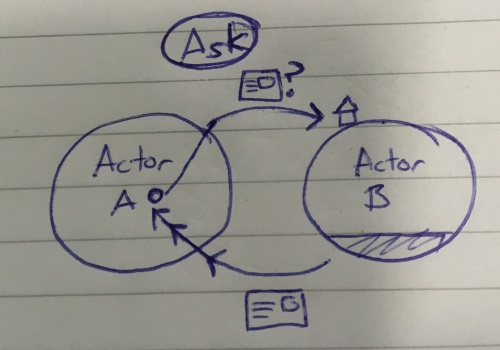 Ask
?
Actor
A
Actor
B